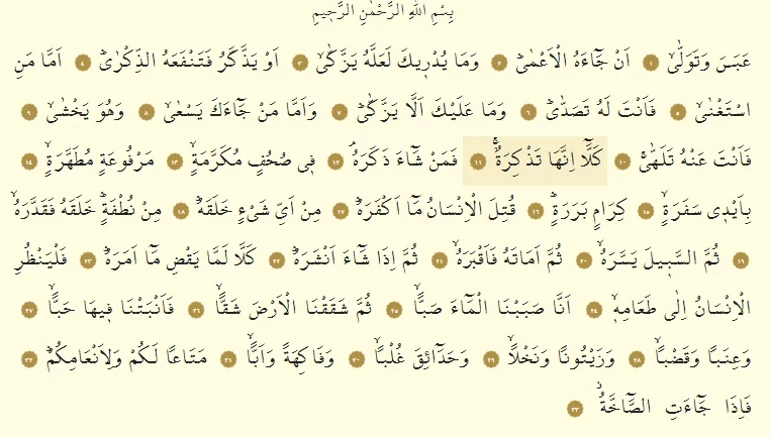 بِسْمِ اللهِ الرَّحْمٰنِ الرَّحٖيمِ
عَبَسَ وَتَوَلّٰىۙ ﴿١﴾ اَنْ جَٓاءَهُ الْاَعْمٰىؕ ﴿٢﴾ وَمَا يُدْرٖيكَ لَعَلَّهُ يَزَّكّٰىۙ ﴿٣﴾ اَوْ يَذَّكَّرُ فَتَنْفَعَهُ الذِّكْرٰىؕ ﴿٤﴾ اَمَّا مَنِ
اسْتَغْنٰىۙ ﴿٥﴾ فَاَنْتَ لَهُ تَصَدّٰىؕ ﴿٦﴾ وَمَا عَلَيْكَ اَلَّا يَزَّكّٰىؕ ﴿٧﴾ وَاَمَّا مَنْ جَٓاءَكَ يَسْعٰىۙ ﴿٨﴾ وَهُوَ يَخْشٰىۙ ﴿٩﴾
فَاَنْتَ عَنْهُ تَلَهّٰىۚ ﴿١٠﴾ كَلَّٓا اِنَّهَا تَذْكِرَةٌۚ ﴿١١﴾ فَمَنْ شَٓاءَ ذَكَرَهُۢ ﴿١٢﴾ فٖي صُحُفٍ مُكَرَّمَةٍۙ ﴿١٣﴾ مَرْفُوعَةٍ مُطَهَّرَةٍۙ ﴿١٤﴾
بِاَيْدٖي سَفَرَةٍۙ ﴿١٥﴾ كِرَامٍ بَرَرَةٍؕ ﴿١٦﴾ قُتِلَ الْاِنْسَانُ مَٓا اَكْفَرَهُؕ ﴿١٧﴾ مِنْ اَيِّ شَيْءٍ خَلَقَهُؕ ﴿١٨﴾ مِنْ نُطْفَةٍؕ خَلَقَهُ فَقَدَّرَهُۙ
﴿١٩﴾ ثُمَّ السَّبٖيلَ يَسَّرَهُۙ ﴿٢٠﴾ ثُمَّ اَمَاتَهُ فَاَقْبَرَهُۙ ﴿٢١﴾ ثُمَّ اِذَا شَٓاءَ اَنْشَرَهُؕ ﴿٢٢﴾ كَلَّا لَمَّا يَقْضِ مَٓا اَمَرَهُؕ ﴿٢٣﴾ فَلْيَنْظُرِ
الْاِنْسَانُ اِلٰى طَعَامِهٖۙ ﴿٢٤﴾ اَنَّا صَبَبْنَا الْمَٓاءَ صَبّاًۙ ﴿٢٥﴾ ثُمَّ شَقَقْنَا الْاَرْضَ شَقّاًۙ ﴿٢٦﴾ فَاَنْبَتْنَا فٖيهَا حَبّاًۙ ﴿٢٧﴾
وَعِنَباً وَقَضْباًۙ ﴿٢٨﴾ وَزَيْتُوناً وَنَخْلاًۙ ﴿٢٩﴾ وَحَدَٓائِقَ غُلْباًۙ ﴿٣٠﴾ وَفَاكِهَةً وَاَبّاًۙ ﴿٣١﴾ مَتَاعاً لَكُمْ وَلِاَنْعَامِكُمْؕ ﴿٣٢﴾
فَاِذَا جَٓاءَتِ الصَّٓاخَّةُؗ ﴿٣٣﴾